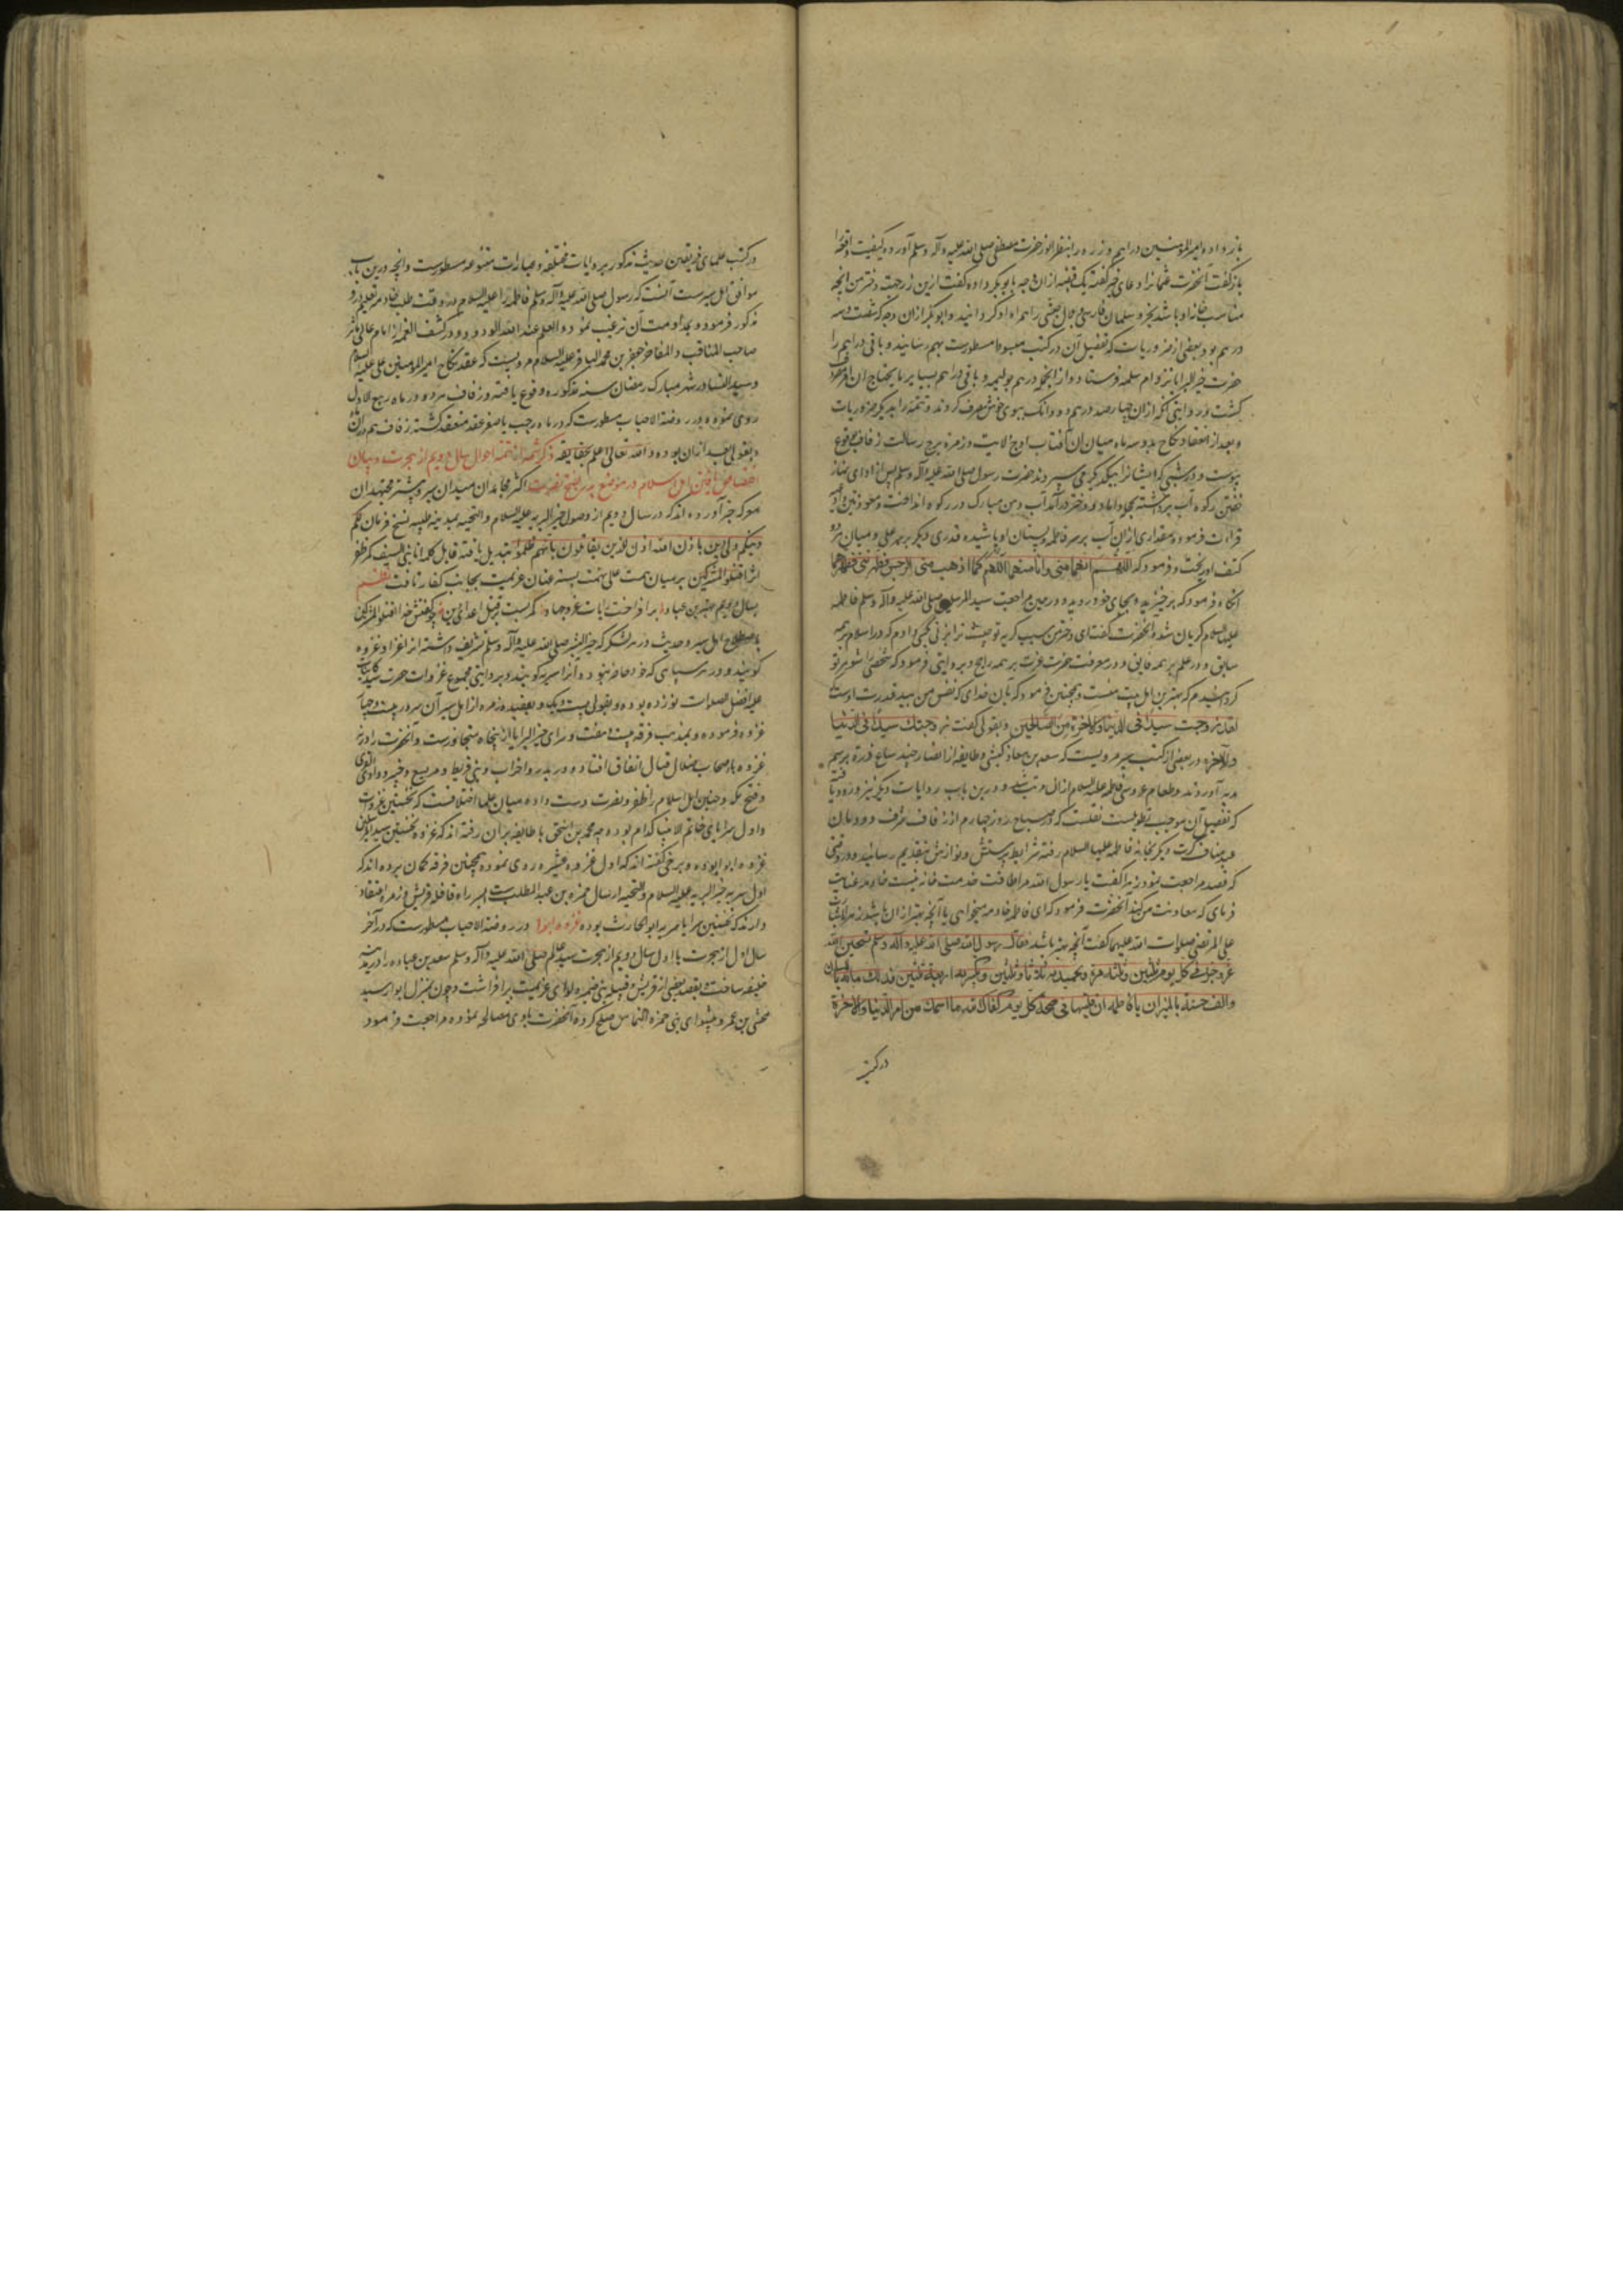 باز داد و امیر المومنین دراهم و زره را بنظر انور حضرت مصطفی صلی الله علیه و آله وسلم آورده کیفیت واقعه
باز گفت آنحضرت عثمانرا دعای خیر گفته یک قبضه از ان وجه بابوبکر داده گفت ازین زر جهت دختر من انچه
مناسب خانه او باشد بخر و سلمان فارسی و بلال حبشی را همراه او گردانید و ابوبکر از ان وجه که شصت و سه
درهم بود بعضی از ضروریات که تفصیل آن در کتب مبسوطه مسطورست بهم رسانید و باقی دراهم را
حضرت خیر البرایا نزد ام سلمه فرستاد و از انجمله ده درهم بولیمه و باقی دراهم بسایر مایحتاج ان
گشت و روایتی آنکه از ان چهارصد درهم دو دانک ببوی خوش صرف کردند و تتمه را بدیگر ضروریات
و بعد از انعقاد نکاح بدو سه ماه میان ان آفتاب اوج ولایت و زهره برج رسالت زفاف بوقوع
پیوست و در شبی که ایشانرا بیکدیگر می سپردند حضرت رسول صلی الله علیه وآله وسلم پس از ادای نماز
خفتن رکوه آب برداشته بخانه داماد و دختر درآمد آب دهن مبارک در رکوه انداخت و معوذتین
قراءت فرموده مقداری از ان آب بر سر فاطمه و پستان او پاشیده قدری دیگر بر سر علی و میان هر دو
کتف او ریخت و فرمود که اللهم انهما منی وانا منهما اللهم کما اذهبت منی الرجس وطهرتنی فطهرهما
انگاه فرمود که برخیزید و بجای خود روید و در حین مراجعت سید المرسلین صلی الله علیه وآله وسلم فاطمه
علیها السلام گریان شد و آنحضرت گفت ای دختر من سبب گریه تو چیست ترا بزنی بکسی دادم که در اسلام بر همه
سابق و در علم بر همه فایق و در معرفت حضرت عزت بر همه راجح و بروایتی فرمود که شخصی را شوهر تو
گردانیدم که بهترین اهل بیت منست و همچنین فرمود که بان خدای که نفس من بید قدرت اوست
لقد زوجت سیدا فی الدنیا والآخرة من الصالحین و بقولی گفت زوجتک سیدا فی الدنیا
والآخرة و در بعضی از کتب سیر مرویست که سعد بن معاذ کبشی و طایفه از انصار چند صاع ذرة برسم
هدیه آوردند و طعام عروسی فاطمه علیها السلام از ان مرتب شد و درین باب روایات دیگر نیز ورود یافته
که تفصیل آن موجب تطویلست نقلست که در صباح روز چهارم از زفاف شرف دودمان
عبد مناف کرت دیگر بخانه فاطمه علیها السلام رفته شرایط پرسش و نوازش بتقدیم رسانید و در وقتی
که قصد مراجعت نمود زهرا گفت یا رسول الله مرا طاقت خدمت خانه نیست خادمه عنایت
فرمای که معاونت من کند آنحضرت فرمود که ای فاطمه خادمه میخواهی یا آنچه بهتر از ان باشد زهرا باشارت
علی المرتضی صلوات الله علیهما گفت آنچه بهتر باشد فقال رسول الله صلی الله علیه وآله وسلم تسبحین الله
عز وجل فی کل یوم ثلثین وثلثة مرة وتحمیدیه ثلاثا وثلثین وتکبریه اربعة وثلثین فذلک مائة باللسان
والف حسنة بالمیزان یا فاطمه ان قلتها فی صبحة کل یوم کفاک الله ما اهمک من امر الدنیا والاخرة
در کتب
در کتب علمای فریقین حدیث مذکور بروایات مختلفه و عبارات متنوعه مسطورست و انچه درین باب
موافق اهل سیرست آنست که رسول صلی الله علیه وآله وسلم فاطمه را علیها السلام در وقت طلب خادم تعلیم ورد
مذکور فرمود و بمداومت آن ترغیب نمود والعلم عند الله الودود و در کشف الغمه از امام عالی ماثر
صاحب المناقب والمفاخر جعفر بن محمد الباقر علیه السلام مرویست که عقد نکاح امیر المومنین علی علیه السلام
و سید النسا در شهر مبارک رمضان سنه مذکوره وقوع یافته و زفاف در ماه ربیع الاول
روی نموده و در روضة الاحباب مسطورست که در ماه رجب یا صفر عقد منعقد گشته زفاف هم در ان
و بقولی بعد از ان بوده والله تعالی اعلم بحقایقه ذکر شمه از تتمه احوال سال دویم از هجرت و بیان
اختصاص یافتن اهل اسلام در موضع بدر بفتح و نصرت اکثر مجاهدان میدان سیر و بیشتر مجتهدان
معرکه خبر آورده اند که در سال دویم از وصول خیر البریه علیه السلام والتحیه بمدینه طیبه نسخ فرمان لکم
دینکم ولی دین باذن الله اذن للذین یقاتلون بانهم ظلموا تبدیل یافته قایل کلمه انا نبی السیف کمر ظفر
اثر اقتلوا المشرکین بر میان همت علی نهمت بسته عنان عزیمت بجانب کفار تافت نظم
بسال دویم بهترین عباد برافراخت رایات غزو جهاد کمر بست بر قتل اعدای دین چو گفتش خدا اقتلوا المشرکین
باصطلاح اهل سیر و حدیث در هر لشکر که خیر البشر صلی الله علیه وآله وسلم تشریف داشته انرا غزا و غزوه
گویند و در هر سپاهی که خود حاضر نبود آنرا سریه گویند و بروایتی مجموع غزوات حضرت سید کاینات
علیه افضل الصلوات نوزده بوده و بقولی بیست و یک و بعقیده زمره از اهل سیر آن سرور بیست و چهار
غزوه فرموده و بمذهب فرقه بیست و هفت و سرای خیر البرایا از پنجاه متجاوزست و آنحضرت را در نه
غزوه با اصحاب ضلال قتال اتفاق افتاده در بدر و احد و احزاب و بنی قریظه و مریسیع و خیبر و وادی القری
و فتح مکه و حنین اهل اسلام را ظفر و نصرت دست داده میان علما اختلافست که نخستین غزوات
و اول سرایای خاتم الانبیا کدام بوده چه محمد بن اسحق با طایفه بر آن رفته اند که غزوه نخستین سید المرسلین
غزوه ابوا بوده و برخی گفته اند که اول غزوه عشیره روی نموده همچنین فرقه گمان برده اند که
اول سریه خیر البریه علیه السلام والتحیه ارسال حمزه بن عبد المطلب است بر سر راه قافله قریش و زمره اعتقاد
دارند که نخستین سرایا سریه ابو الحارث بوده غزوه ابوا در روضة الاحباب مسطورست که در آخر
سال اول از هجرت یا اول سال دویم از هجرت سید عالم صلی الله علیه وآله وسلم سعد بن عباده را در مدینه
خلیفه ساخت و بقصد بعضی از قریش و قبیله بنی ضمره لوای عزیمت برافراشت و چون بمنزل ابوا رسید
مخشی بن عمرو پیشوای بنی ضمره التماس صلح کرده آنحضرت با وی مصالحه نموده مراجعت فرمود